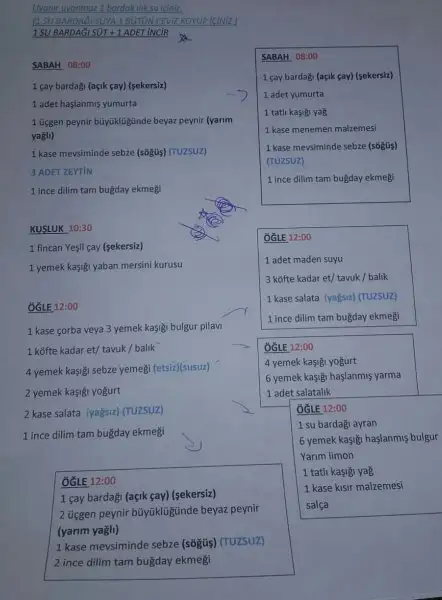 Uyanır uyanmaz 2 bardak ılık su içiniz.
(1 SU BARDAĞI SUYA 1 BÜTÜN CEVİZ KOYUP İÇİNİZ)
1 SU BARDAĞI SÜT + 1 ADET İNCİR
SABAH 08:00
1 çay bardağı (açık çay) (şekersiz)
1 adet haşlanmış yumurta
1 üçgen peynir büyüklüğünde beyaz peynir (yarım
yağlı)
1 kase mevsiminde sebze (söğüş) (TUZSUZ)
3 ADET ZEYTİN
1 ince dilim tam buğday ekmeği
SABAH 08:00
1 çay bardağı (açık çay) (şekersiz)
1 adet yumurta
1 tatlı kaşığı yağ
1 kase menemen malzemesi
1 kase mevsiminde sebze (söğüş)
(TUZSUZ)
1 ince dilim tam buğday ekmeği
KUŞLUK 10:30
1 fincan Yeşil çay (şekersiz)
1 yemek kaşığı yaban mersini kurusu
ÖĞLE 12:00
1 kase çorba veya 3 yemek kaşığı bulgur pilavı
1 köfte kadar et/ tavuk / balık
4 yemek kaşığı sebze yemeği (etsiz)(susuz)
2 yemek kaşığı yoğurt
2 kase salata (yağsız) (TUZSUZ)
1 ince dilim tam buğday ekmeği
ÖĞLE 12:00
1 adet maden suyu
3 köfte kadar et/ tavuk / balık
1 kase salata (yağsız) (TUZSUZ)
1 ince dilim tam buğday ekmeği
ÖĞLE 12:00
4 yemek kaşığı yoğurt
6 yemek kaşığı haşlanmış yarma
1 adet salatalık
ÖĞLE 12:00
1 su bardağı ayran
6 yemek kaşığı haşlanmış bulgur
Yarım limon
1 tatlı kaşığı yağ
1 kase kısır malzemesi
salça
ÖĞLE 12:00
1 çay bardağı (açık çay) (şekersiz)
2 üçgen peynir büyüklüğünde beyaz peynir
(yarım yağlı)
1 kase mevsiminde sebze (söğüş) (TUZSUZ)
2 ince dilim tam buğday ekmeği